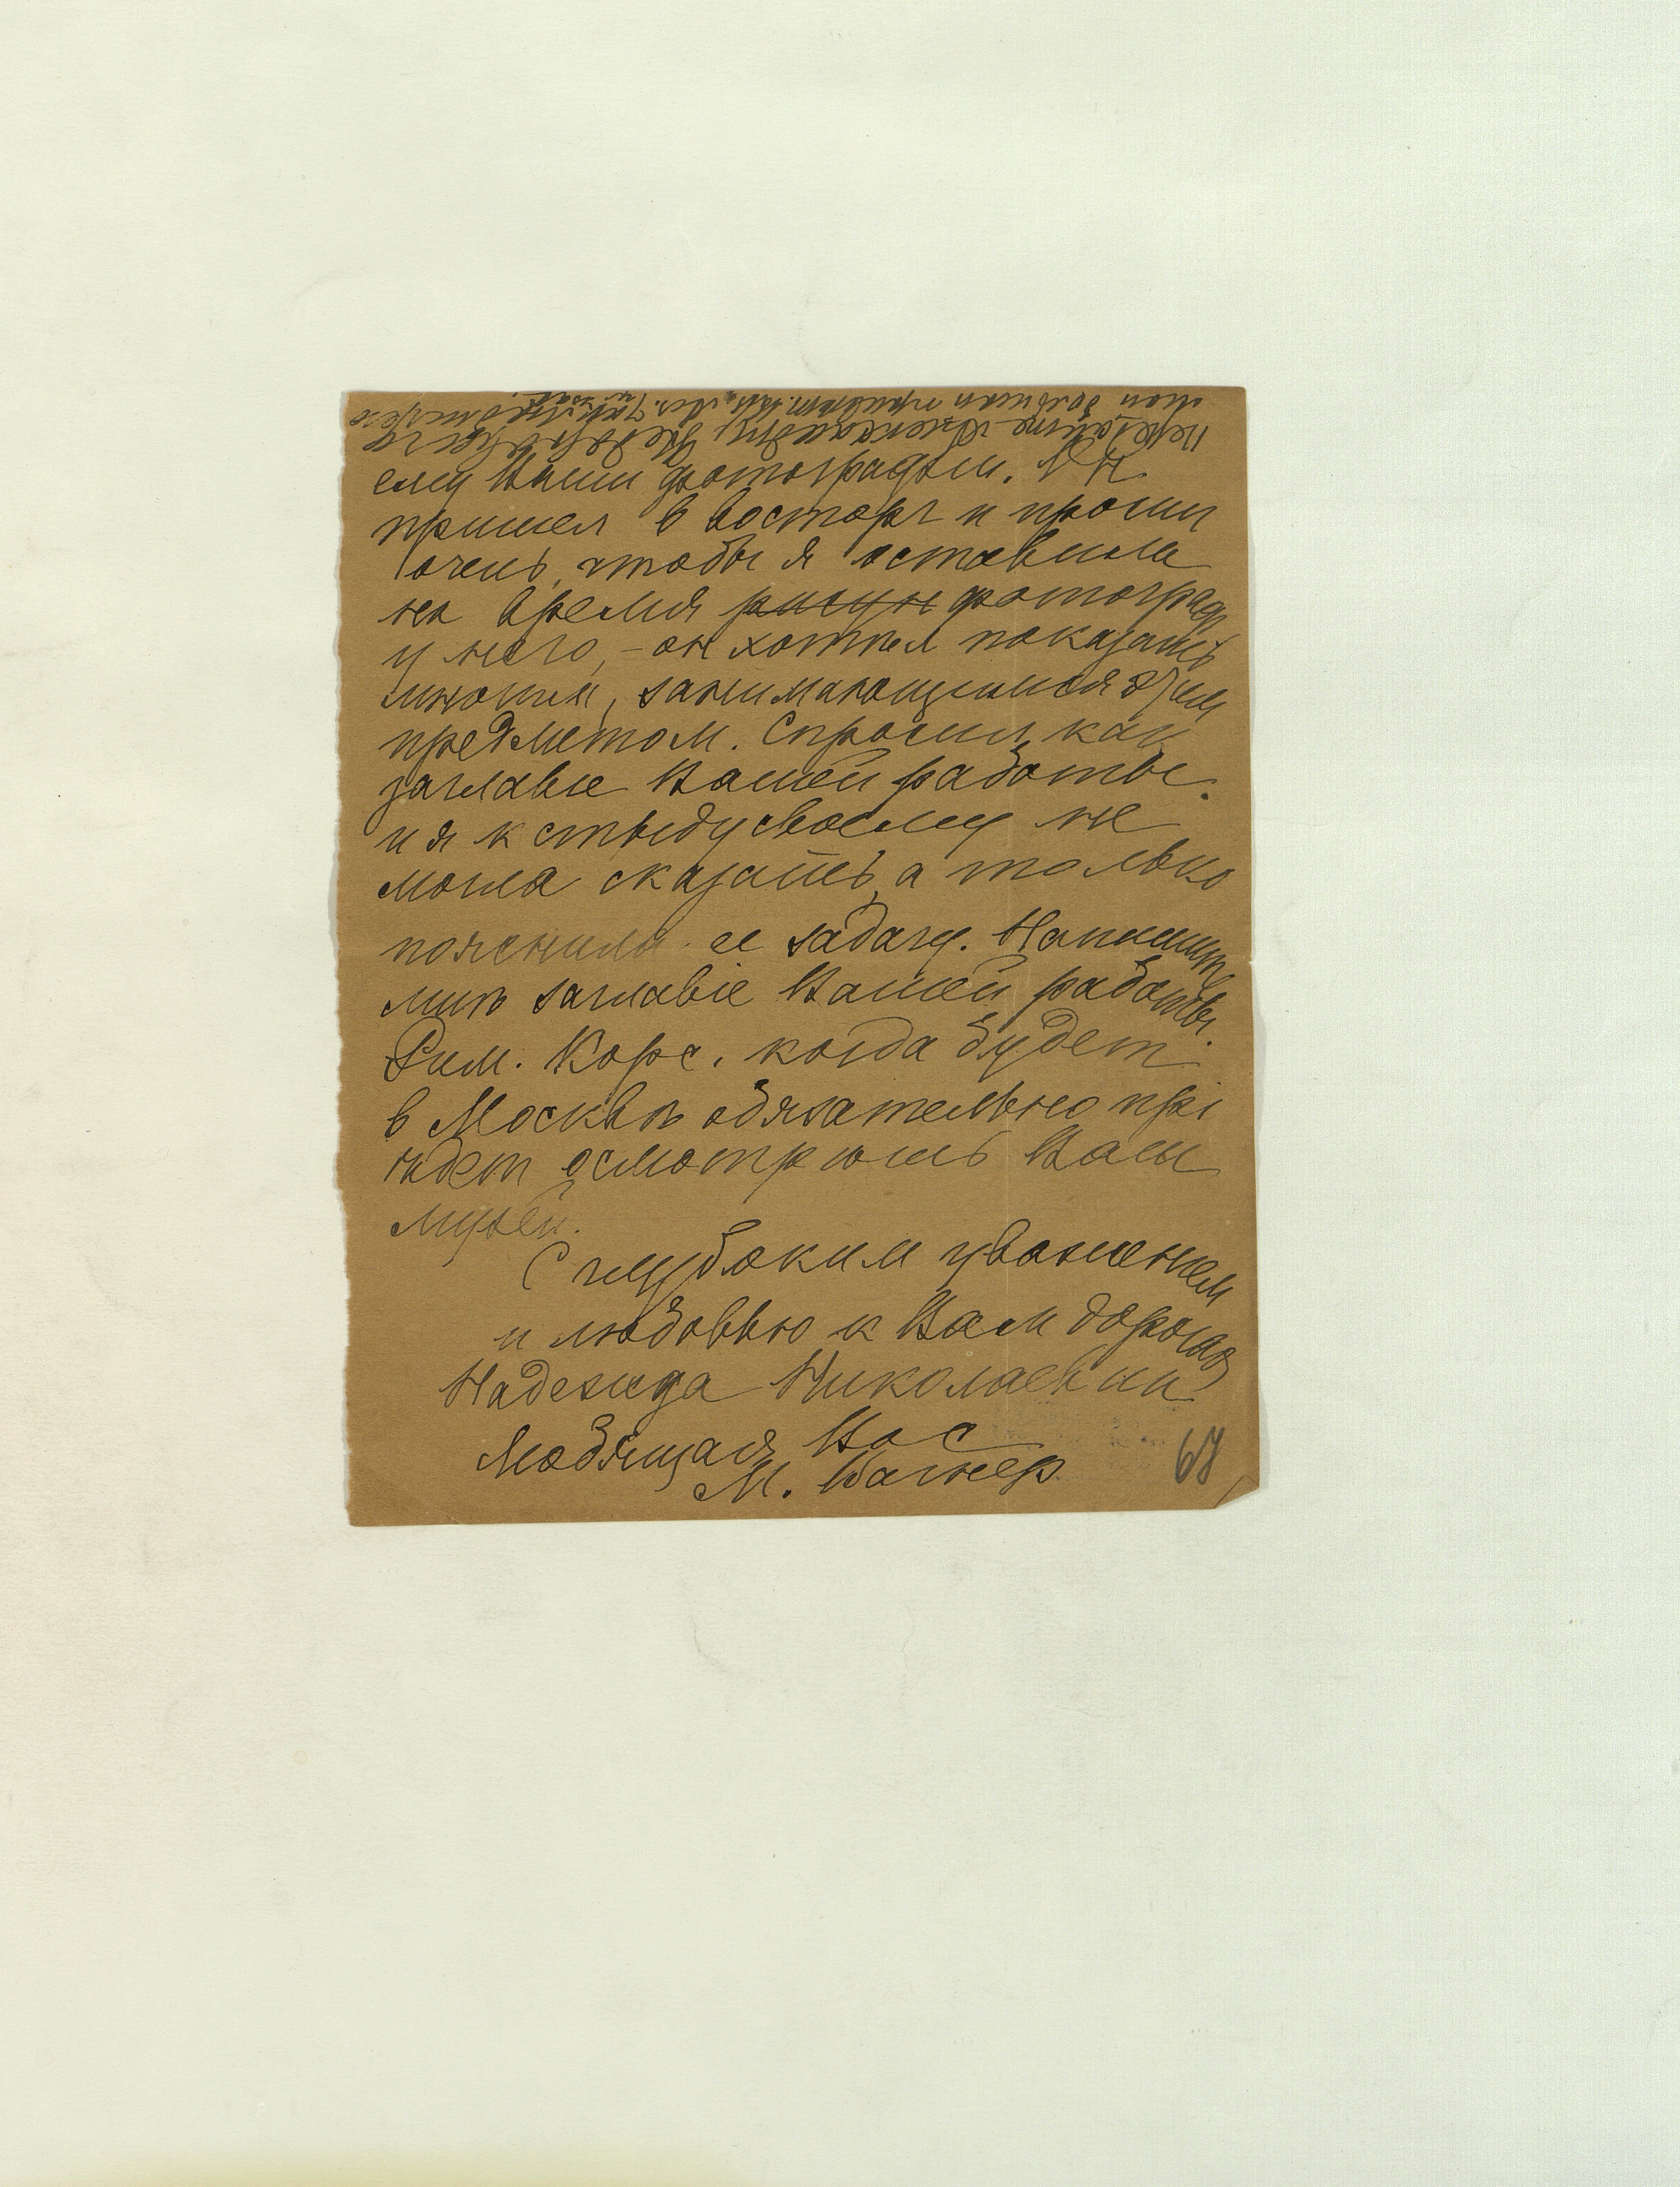 Передайте Александру Федоровичу
мой большой привет.
ему Ваши фотографии. А Н
пришел в восторг и просил
очень, чтобы я оставила
на время рисун фотограф
у него, – он хотел показать
иным, занимающимися этим
предметом. Спросил, как
заглавие Вашей работы.
и я к стыду своему не
могла сказать, а только
пояснила ее задачу. Напишите
мнѣ заглавіе Вашей работы.
Рим. Корс. когда будет
в Москвѣ обязательно прі
ѣдет осмотрѣть Ваш
музей.
С глубоким уважением
и любовью к Вам дорогая
Надежда Николаевна
Любящая Вас
М. Вагнер
67